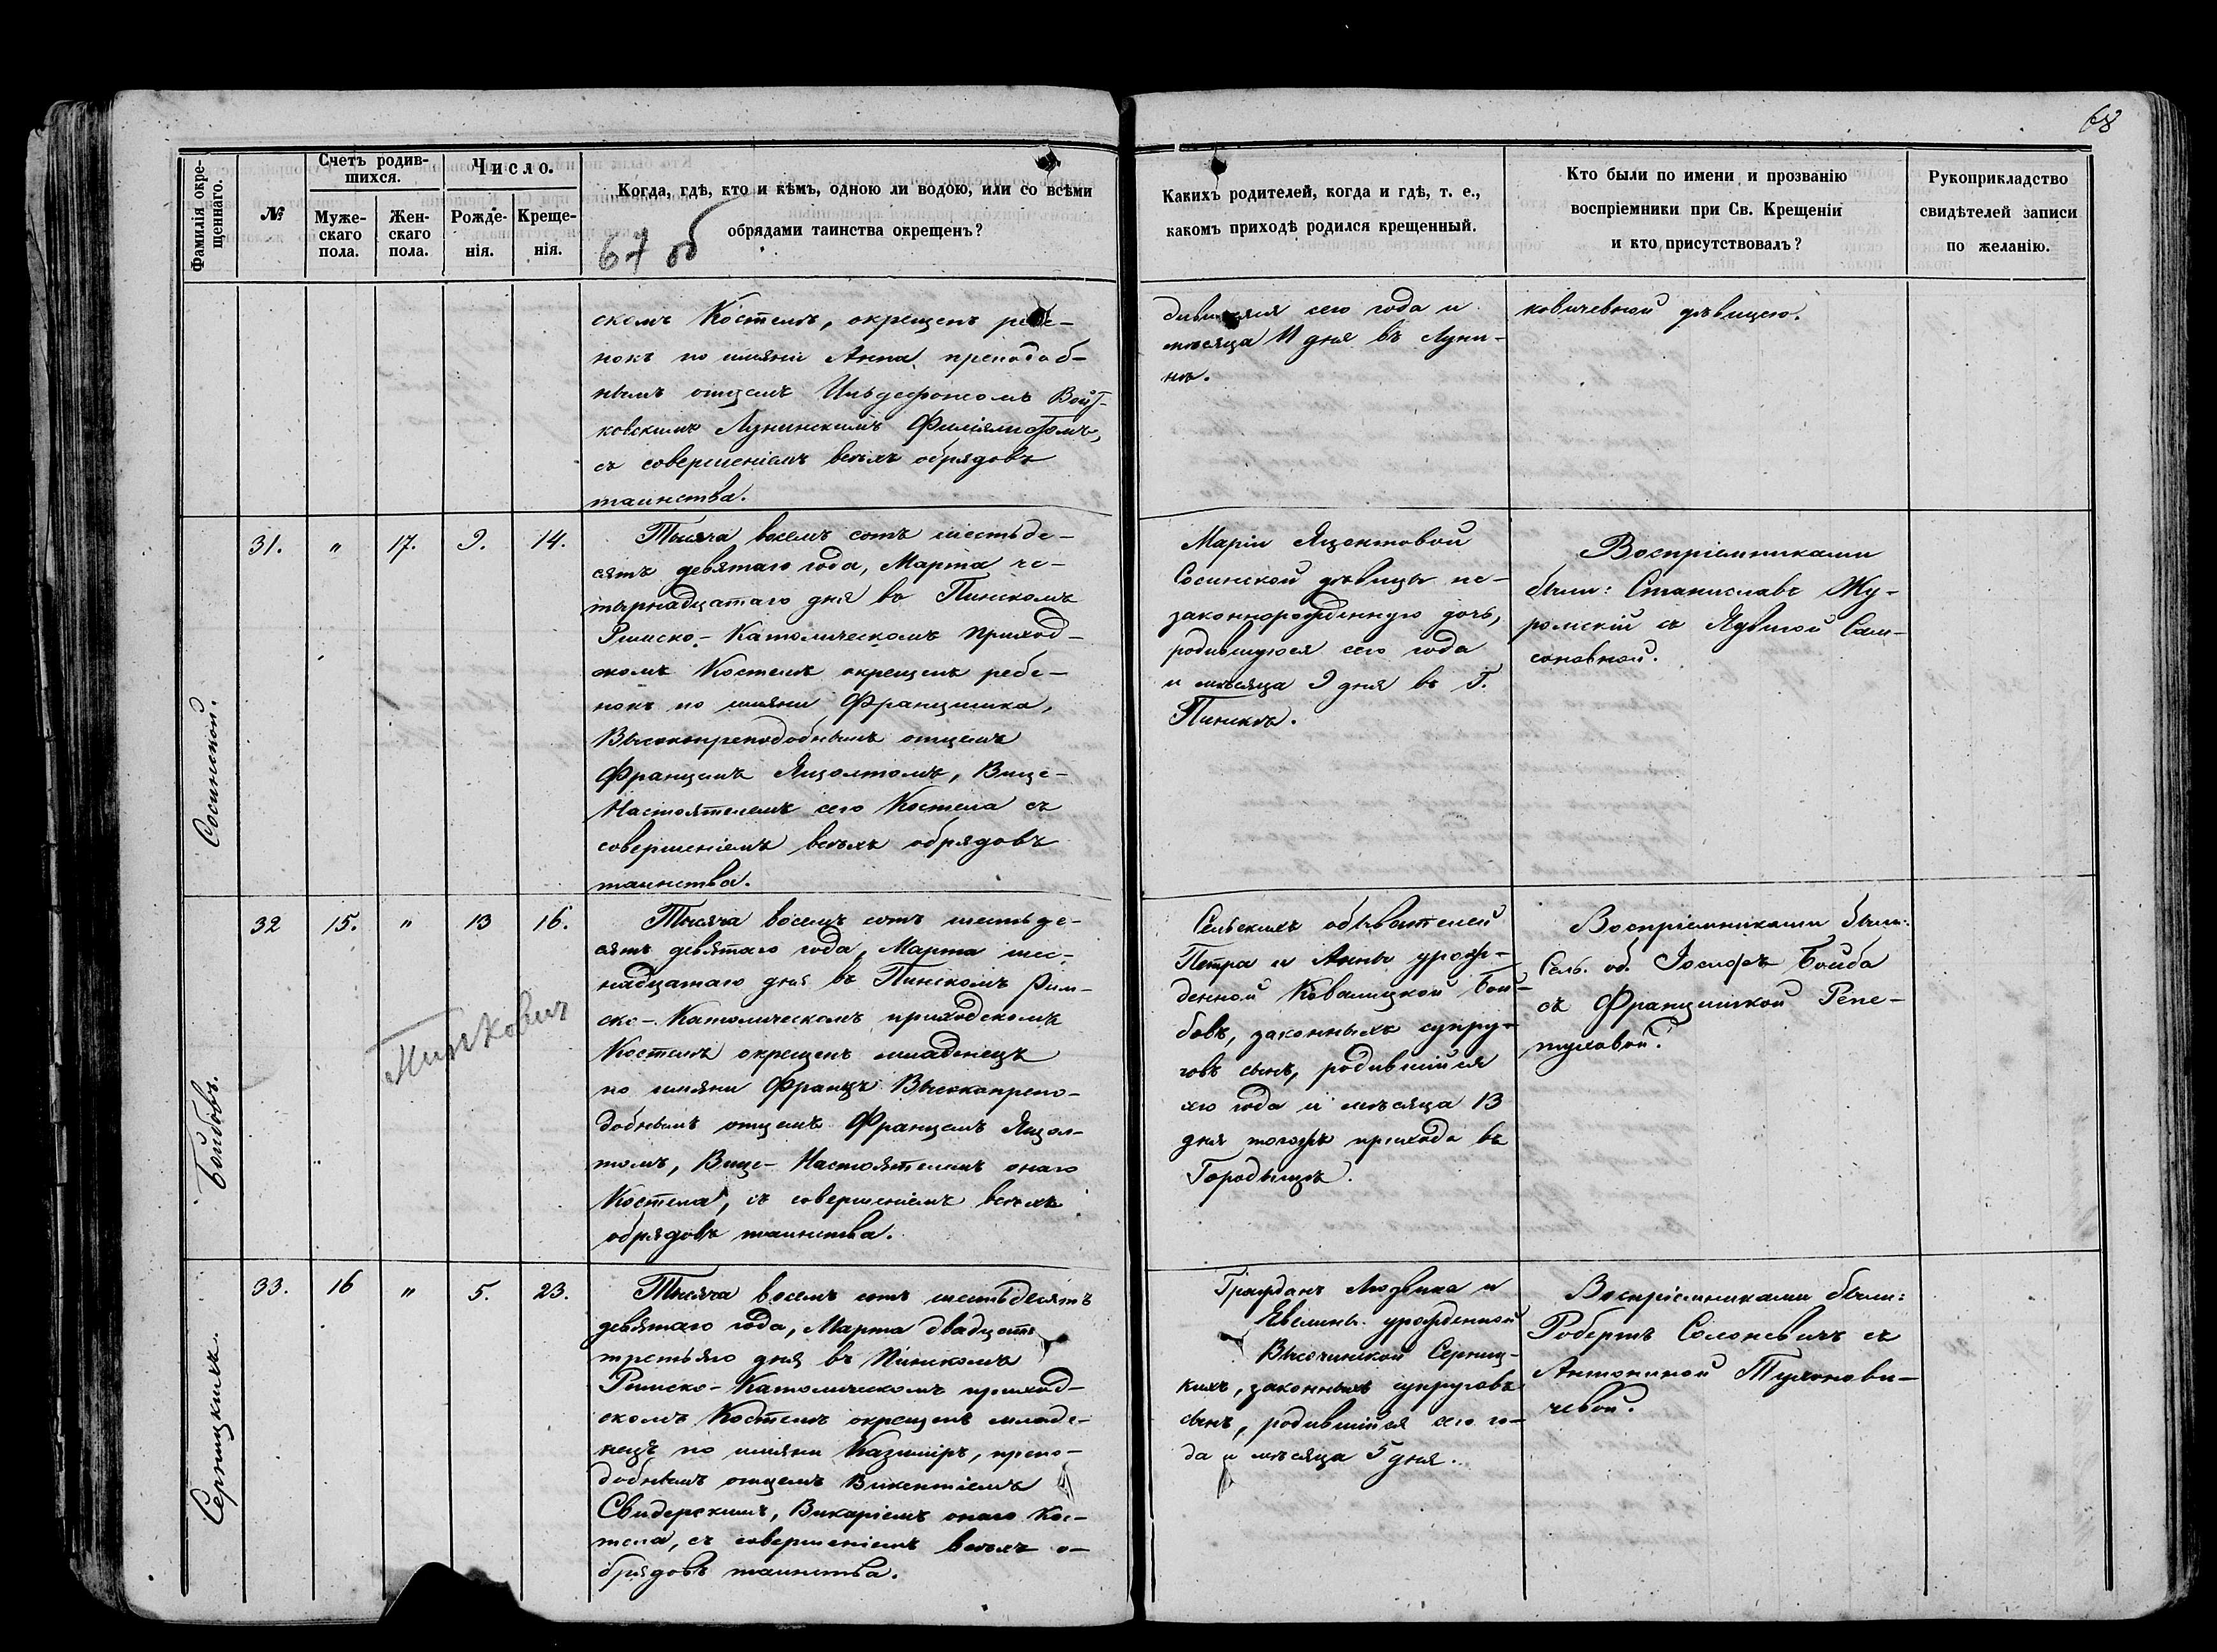 68
Фамилія окре-
щеннаго.
№
Счетъ родив-
шихся.
Муже-
скаго
пола.
Жен-
скаго
пола.
Число.
Рожде-
нія.
Креще-
нія.
Когда, гдѣ, кто и кѣмъ, одною ли водою, или со всѣми
обрядами таинства окрещенъ?
67 об
Какихъ родителей, когда и гдѣ, т. е.,
какомъ приходѣ родился крещенный.
Кто были по имени и прозванію
воспріемники при Св. Крещеніи
и кто присутствовалъ?
Рукоприкладство
свидѣтелей записи
по желанію.
скомъ Костелѣ, окрещенъ ребе-
нокъ по имяни Анна, преподоб-
нымъ отцемъ Ильдефонсомъ Войт-
ковскимъ Лунинскимъ Филіялистомъ,
съ совершеніемъ всѣхъ обрядовъ
таинства.
сего года и
мѣсяца 11 дня въ Луни-
нѣ.
ковичевной дѣвицею.
Сосинской.
31.
"
17.
9.
14.
Тысяча восемъ сотъ шестьде-
сятъ девятаго года, Марта че-
тырнадцатаго дня въ Пинскомъ
Римско-Католическомъ приход-
скомъ Костелѣ окрещенъ ребе-
нокъ по имяни Францишка,
Высокопреподобнымъ отцемъ
Францемъ Яцолтомъ, Вице-
Настоятелемъ сего Костела съ
совершеніемъ всѣхъ обрядовъ
таинства.
Маріи Яцентовой
Сосинской дѣвицы не-
законнорожденную дочь,
родившуюся сего года
и мѣсяца 9 дня въ Г.
Пинскѣ.
Воспріемниками
были: Станиславъ Жу-
ромскій съ Ядвигой Сам-
соновной.
Бойбовъ.
32
15.
"
13
16.
Пинкович
Тысяча восемъ сотъ шестьде-
сятъ девятаго года, Марта шес-
надцатаго дня въ Пинскомъ Рим-
ско-Католическомъ приходскомъ
Костелѣ окрещенъ младенецъ
по имяни Францъ Высокопрепо-
добнымъ отцемъ Францемъ Яцол-
томъ, Вице-Настоятелемъ онаго
Костела, съ совершеніемъ всѣхъ
обрядовъ таинства.
Сельскихъ обывателей
Петра и Анны урож-
денной Ковалицкой Бой-
бовъ, законныхъ супру-
говъ сынъ, родившійся
сего года и мѣсяца 13
дня тогожъ прихода въ
Городыщѣ.
Воспріемниками были:
Сель. об. Іосифъ Бойба
съ Францишкой Репе-
туховой.
Серницкихъ.
33.
16
"
5.
23.
Тысяча восемъ сотъ шестьдесятъ
девятаго года, Марта двадцать
третьяго дня въ Пинскомъ
Римско-Католическомъ приход-
скомъ Костелѣ окрещенъ младе-
нецъ по имяни Казиміръ, препо-
добнымъ отцемъ Викентіемъ
Свидерскимъ, Викаріемъ онаго Кос-
тела, съ совершеніемъ всѣхъ о-
брядовъ таинства.
Гражданъ Людвика и
Эвелины урожденной
Высочинской Серниц-
кихъ, законныхъ супруговъ
сынъ, родившійся сего го-
да и мѣсяца 5 дня.
Воспріемниками были:
Робертъ Солоневичъ съ
Антониной Тухонови-
чевой.